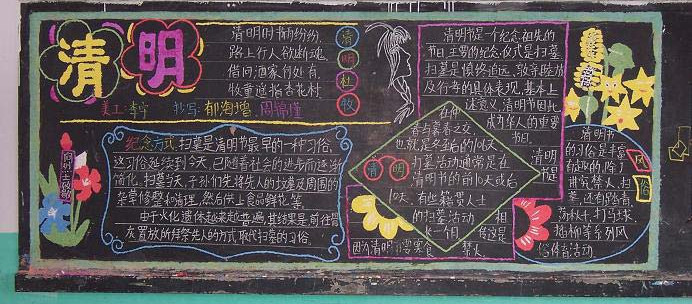 清明
清明时节雨纷纷,
路上行人欲断魂。
借问酒家何处有,
牧童遥指杏花村
清
明
杜
牧
美工:李宁 抄写:郁海增、周锦瑾
纪念方式:扫墓是清明节最早的一种习俗,
这习俗延续到今天,已随着社会的进步而逐渐
简化。扫墓当天,子孙们先将先人的坟墓及周围的
杂草修整和清理,然后供上食品鲜花等。
由于火化遗体越来越普遍,其结果是前往骨
灰置放所拜祭先人的方式取代扫墓的习俗。
清明节是一个纪念祖先的
节日,主要的纪念仪式是扫墓,
扫墓是慎终追远、敦亲睦族
及行孝的具体表现,基本上
述意义,清明节因此
成为华人的重要
节日。
在仲
春与暮春之交,
也就是冬至后的106天
扫墓活动通常是在
清明节的前10天或后
10天。有些籍贯人士
的扫墓活动
一个月。
清明
清明
节是
相
传这是
因为清明
寒食
禁火。
清明节
的习俗是丰富
有趣的,除了
讲究禁火、扫
墓,还有踏青
荡秋千、打马球、
插柳等系列风
俗体育活动。
风
俗